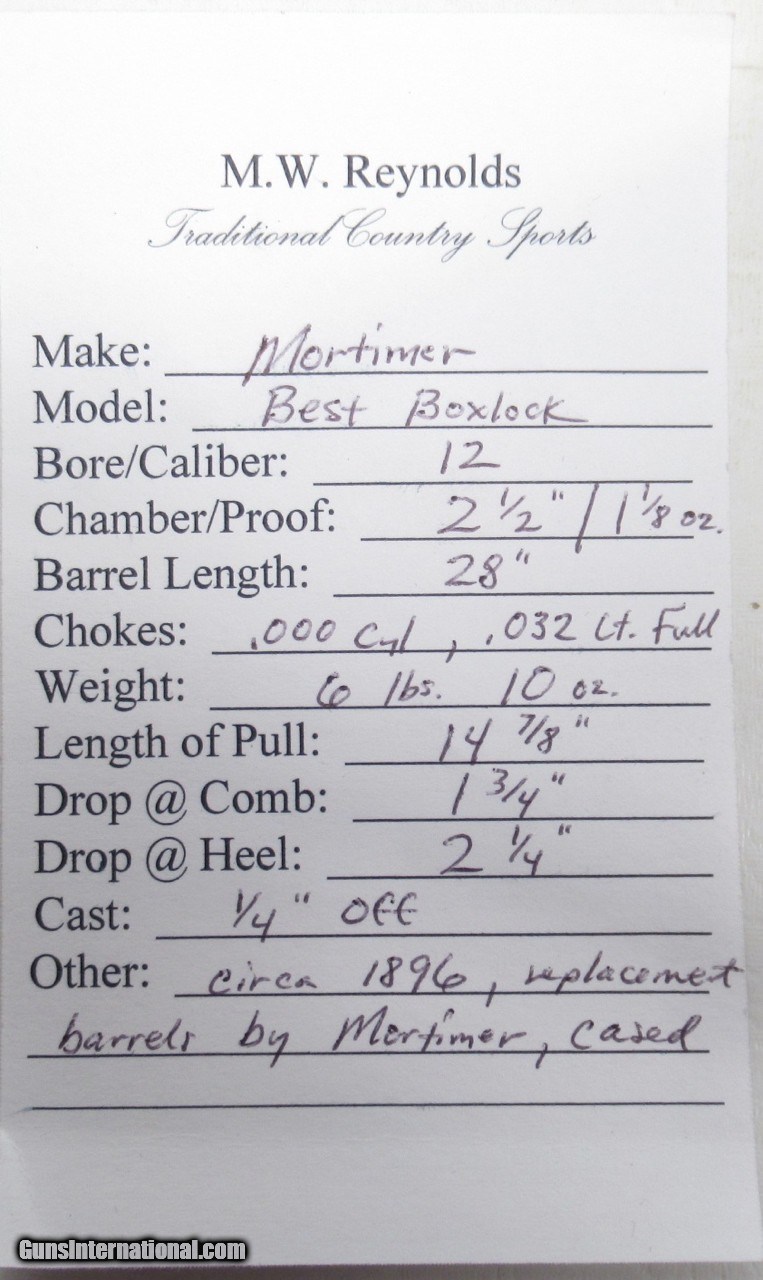 M.W. Reynolds
Traditional Country Sports
Make: Mortimer
Model: Best Boxlock
Bore/Caliber: 12
Chamber/Proof: 2 1/2" / 1 1/8 oz.
Barrel Length: 28"
Chokes: .000 Cyl, .032 Lt. Full
Weight: 6 lbs. 10 oz.
Length of Pull: 14 7/8"
Drop @ Comb: 1 3/4"
Drop @ Heel: 2 1/4"
Cast: 1/4" Off
Other: circa 1896, replacement
barrels by Mortimer, cased
GunsInternational.com